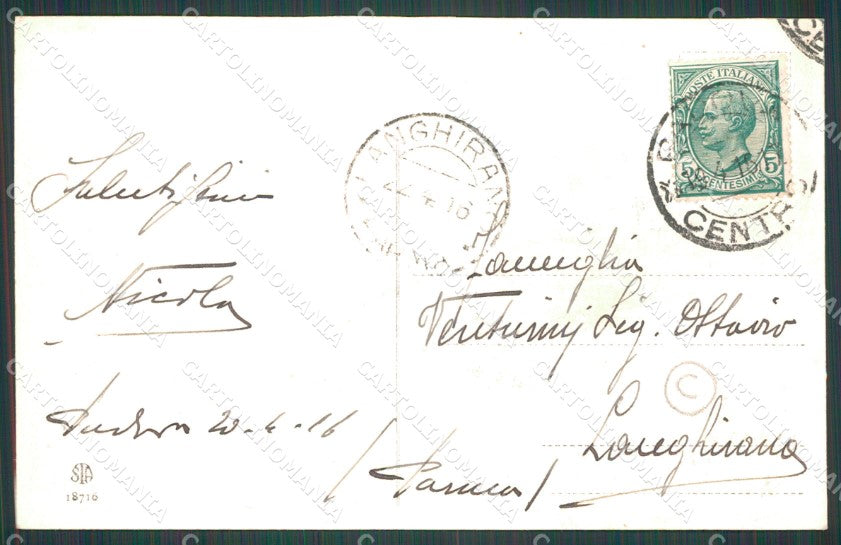 Salutissimi
Nicola
Padova 20-4-16
STA
18716
LANGHIRANO
22.4.16
POSTE ITALIANE
CENTESIMI 5
CENTRO
Famiglia
Venturini Sig. Ottavio
C
Langhirano
(Parma)
CARTOLINOMANIA